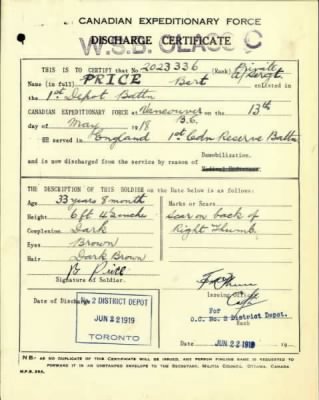 CANADIAN EXPEDITIONARY FORCE
DISCHARGE CERTIFICATE
W.S.B. CLASS C
THIS IS TO CERTIFY that No 2023336 (Rank) Private A/Sergt.
Name (in full) PRICE Bert enlisted in
1st Depot Battn
CANADIAN EXPEDITIONARY FORCE at Vancouver B.C. on the 13th
day of May 1918
HE served in England 1st Cdn Reserve Battn
and is now discharged from the service by reason of Demobilization.
THE DESCRIPTION OF THIS SOLDIER on the Date below is as follows:
Age 33 years 8 month
Height 6 ft 4 2 inches
Complexion Dark
Eyes Brown
Hair Dark Brown
Marks or Scars
Scar on back of
Right Thumb.
B Price
Signature of Soldier.
Issuing Officer
Capt
O.C. No. 2 District Depot.
Rank
Date of Discharge
No 2 DISTRICT DEPOT
JUN 22 1919
TORONTO
Date JUN 22 1919 19
N.B: AS NO DUPLICATE OF THIS CERTIFICATE WILL BE ISSUED, ANY PERSON FINDING SAME IS REQUESTED TO
FORWARD IT IN AN UNSTAMPED ENVELOPE TO THE SECRETARY, MILITIA COUNCIL, OTTAWA, CANADA.